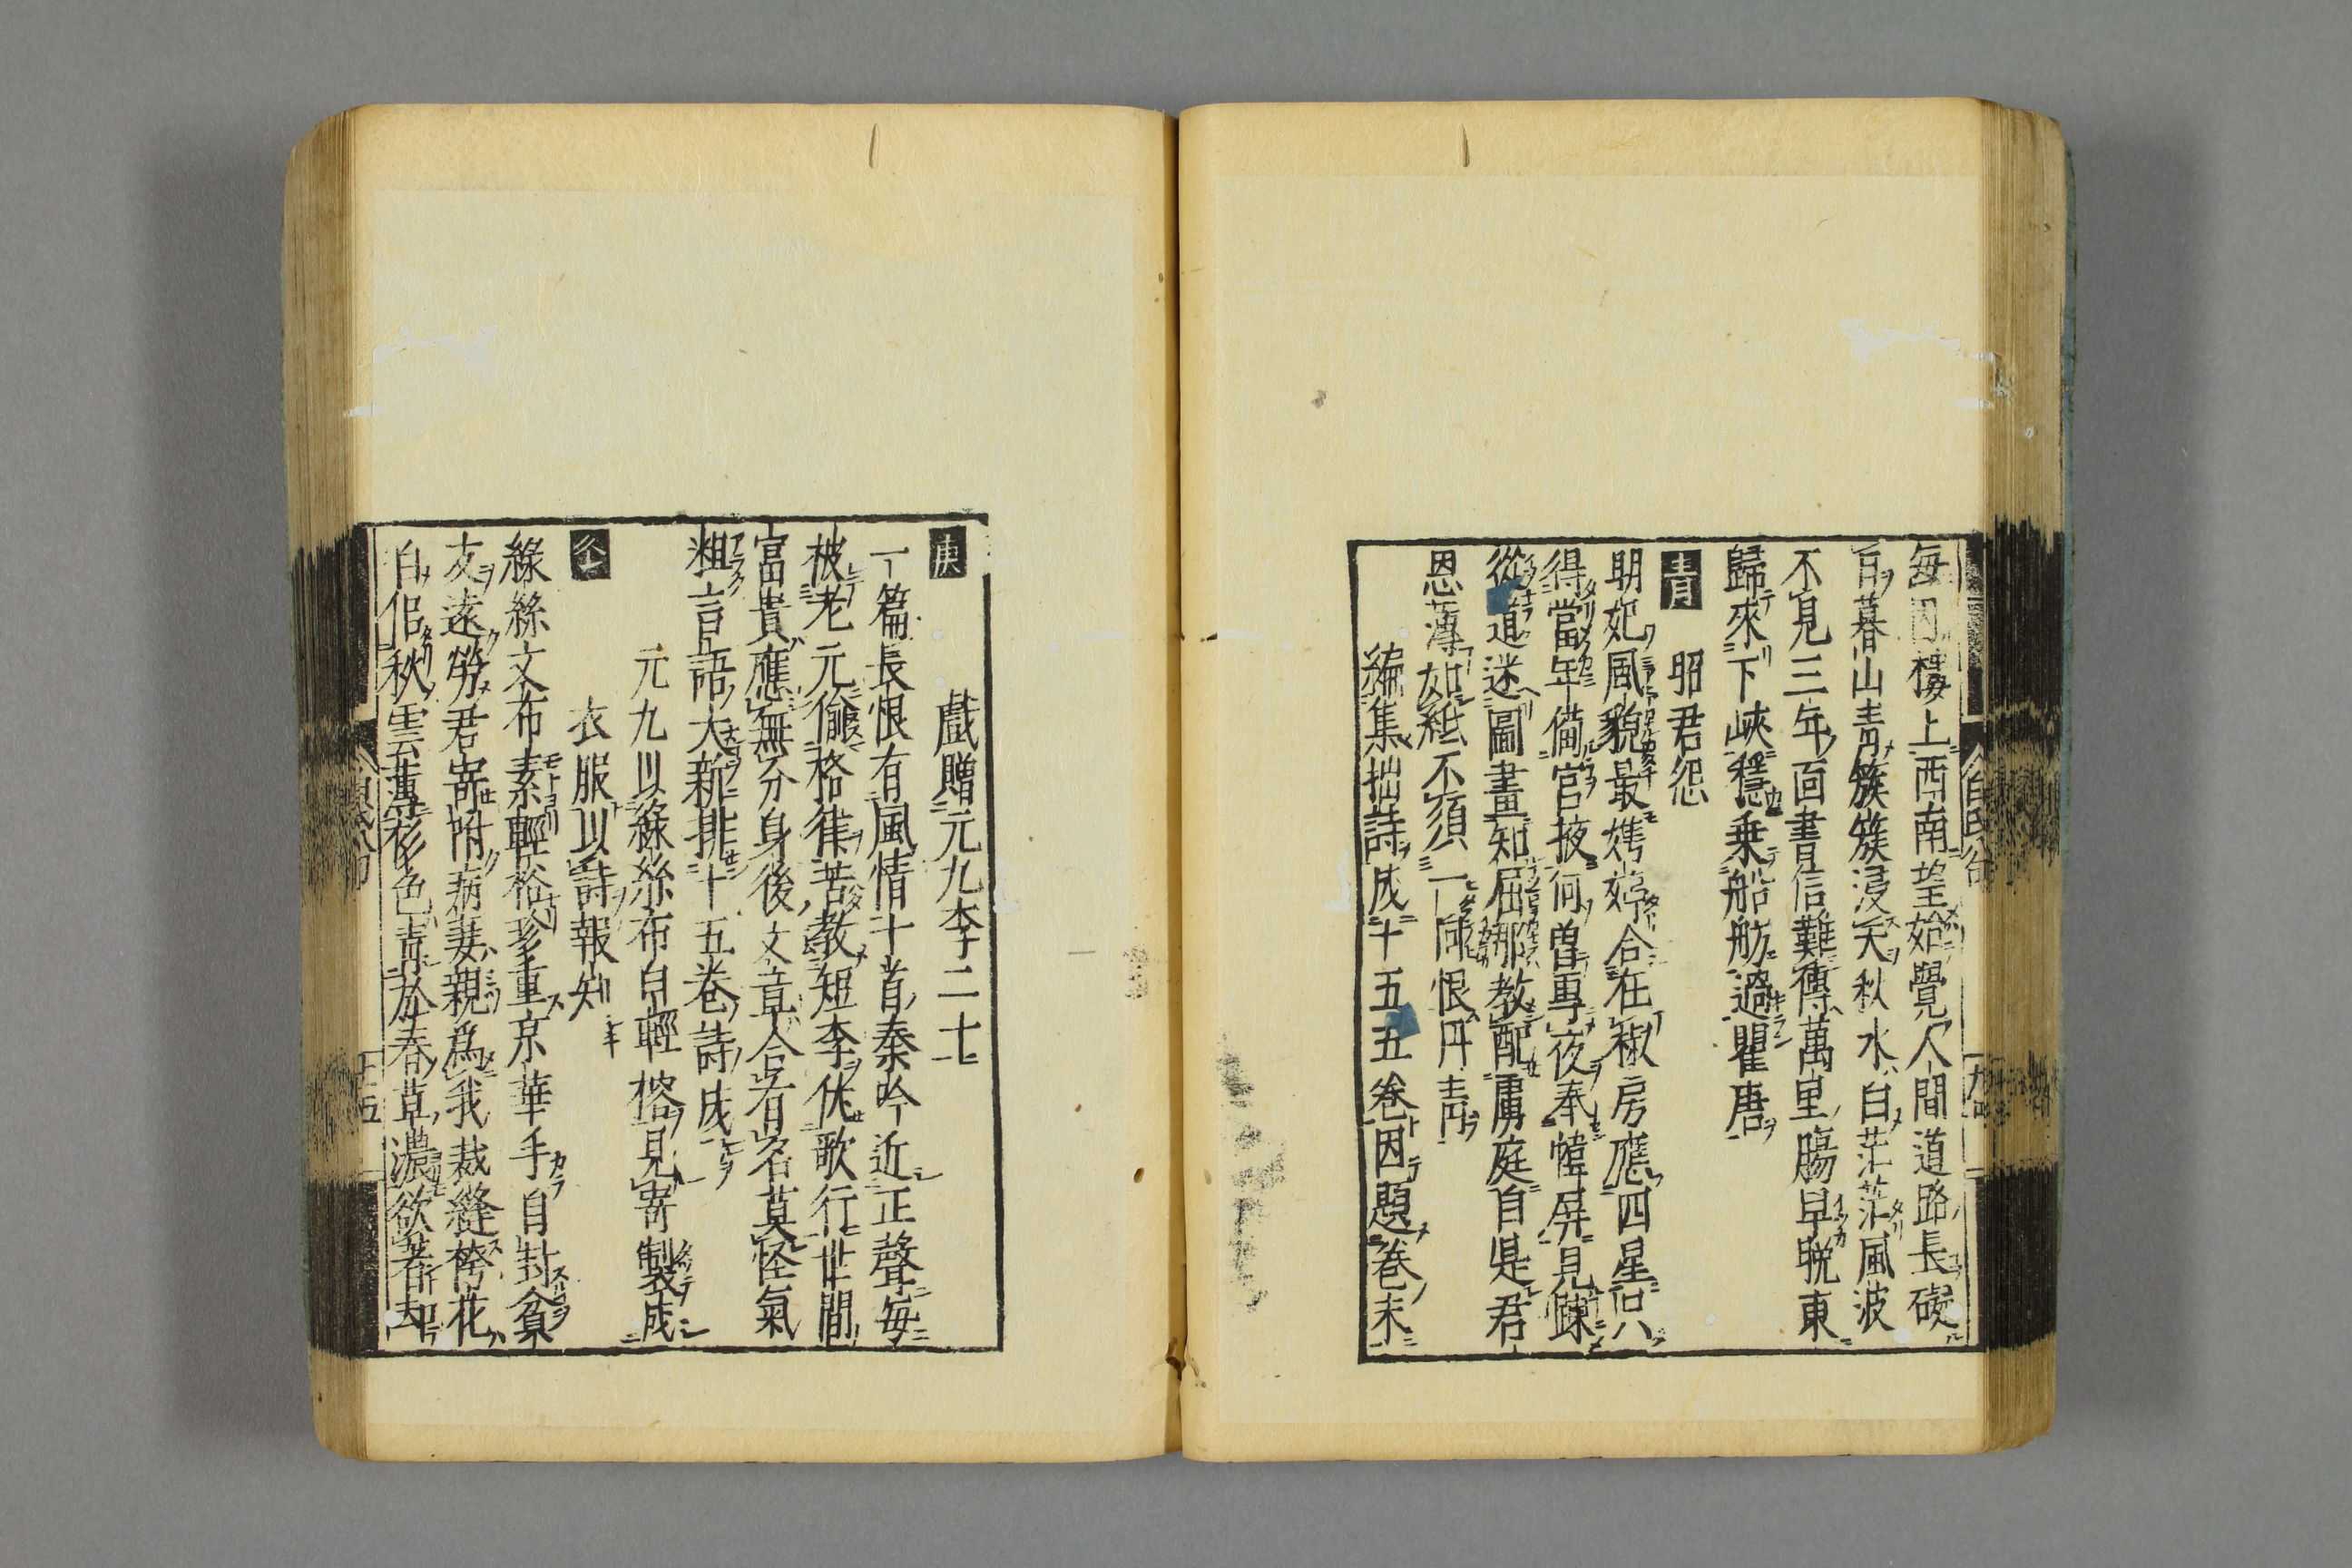 毎因樓上西南望始覺人間道路長礙
日暮山青簇簇浸天秋水白茫茫風波
不見三年面書信難傳萬里腸早晩東
歸來下峽穩乗船舫過瞿唐
青 昭君怨
明妃風貌最娉婷合在椒房應四星只
得當年備宮掖何曽專夜奉幃屏見踈
從道迷圖畫知屈那教配虜庭自是君
恩薄如紙不須一向恨丹青
編集拙詩成一十五卷因題卷末
戲贈元九李二十
庚
一篇長恨有風情十首秦吟近正聲毎
被老元偸格律苦教短李伏歌行世間
富貴應無分身後文章合有名莫怪氣
粗言語大新排十五卷詩成
元九以綠絲布白輕榕見寄製成
衣服以詩報知
綠絲文布素輕榕珍重京華手自封貧
友遠勞君寄附病妻親爲我裁縫袴花
白似秋雲薄衫色青於春草濃欲著却